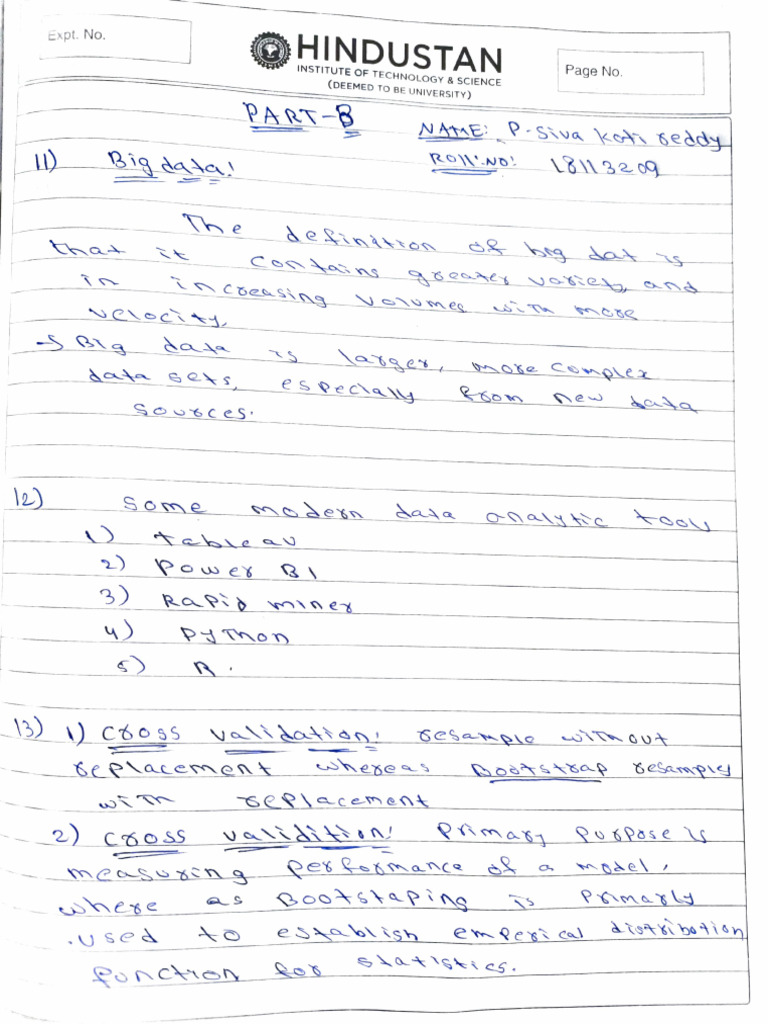 Expt. No.
HINDUSTAN
INSTITUTE OF TECHNOLOGY & SCIENCE
(DEEMED TO BE UNIVERSITY)
Page No.
PART-B
NAME: P. Siva Koti reddy
Roll: NO: 18113209
11) Big data:
The definition of big dat is
that it contains greater variety, and
in increasing volumes with more
velocity.
→ Big data is larger, more complex
data sets, especialy from new data
sources.
12) Some modern data analytic tools
1) Tableau
2) Power BI
3) Rapid miner
4) Python
5) R.
13) 1) Cross validation: resample without
replacement whereas Bootstrap resamples
with replacement
2) Cross validition: Primary purpose is
measuring performance of a model,
where as Bootstaping is Primarly
used to establish emperical distribution
function for statistics.